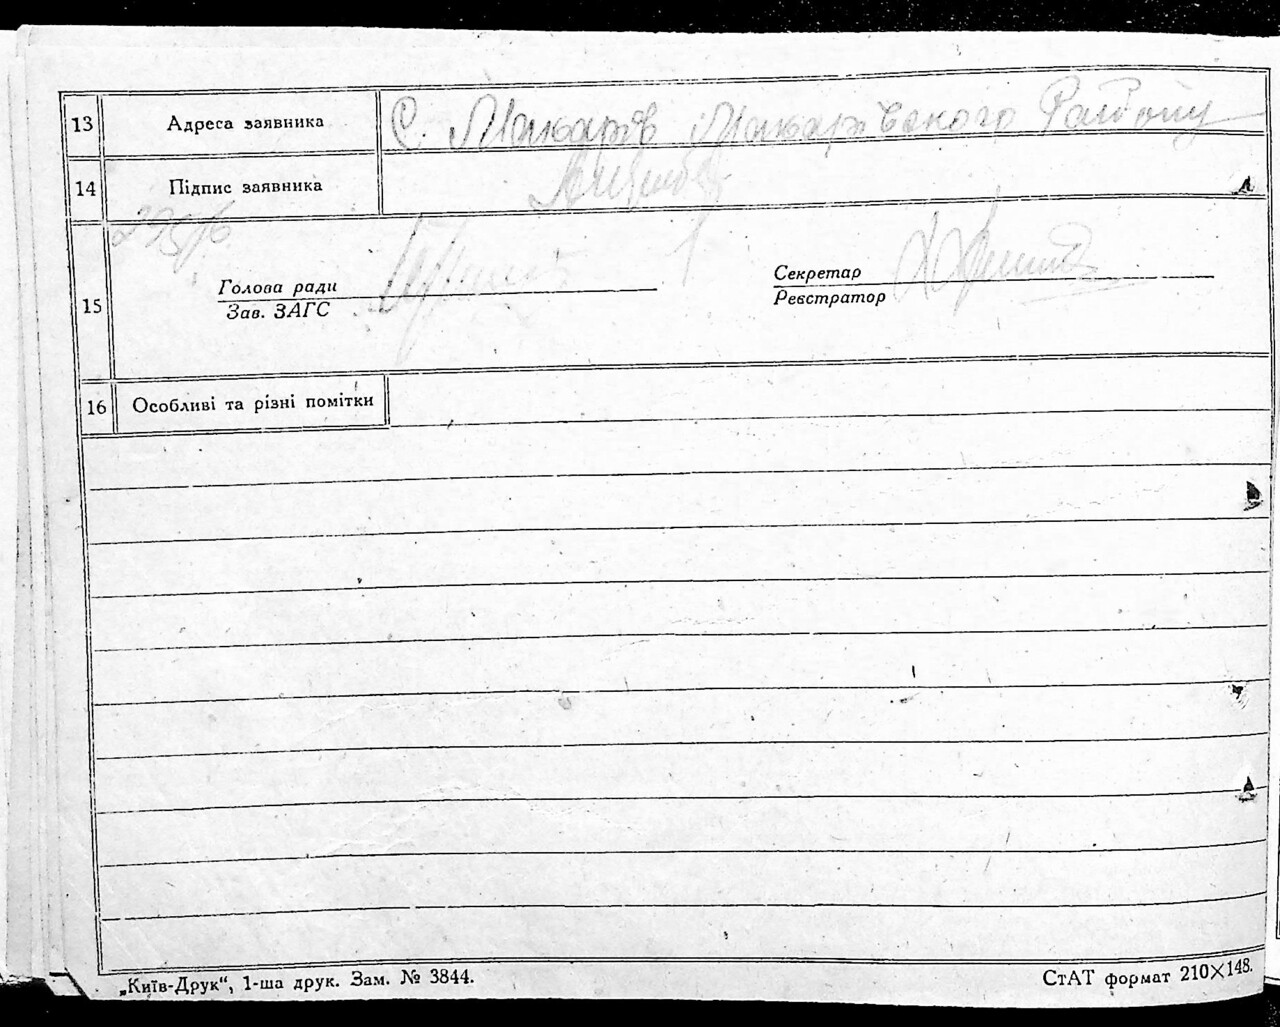 13 Адреса заявника С. Макарів Макарівського Району
14 Підпис заявника
Голова ради
Зав. ЗАГС
Секретар
Реєстратор
15
16 Особливі та різні помітки
„Київ-Друк“, 1-ша друк. Зам. № 3844.
СтАТ формат 210X148.